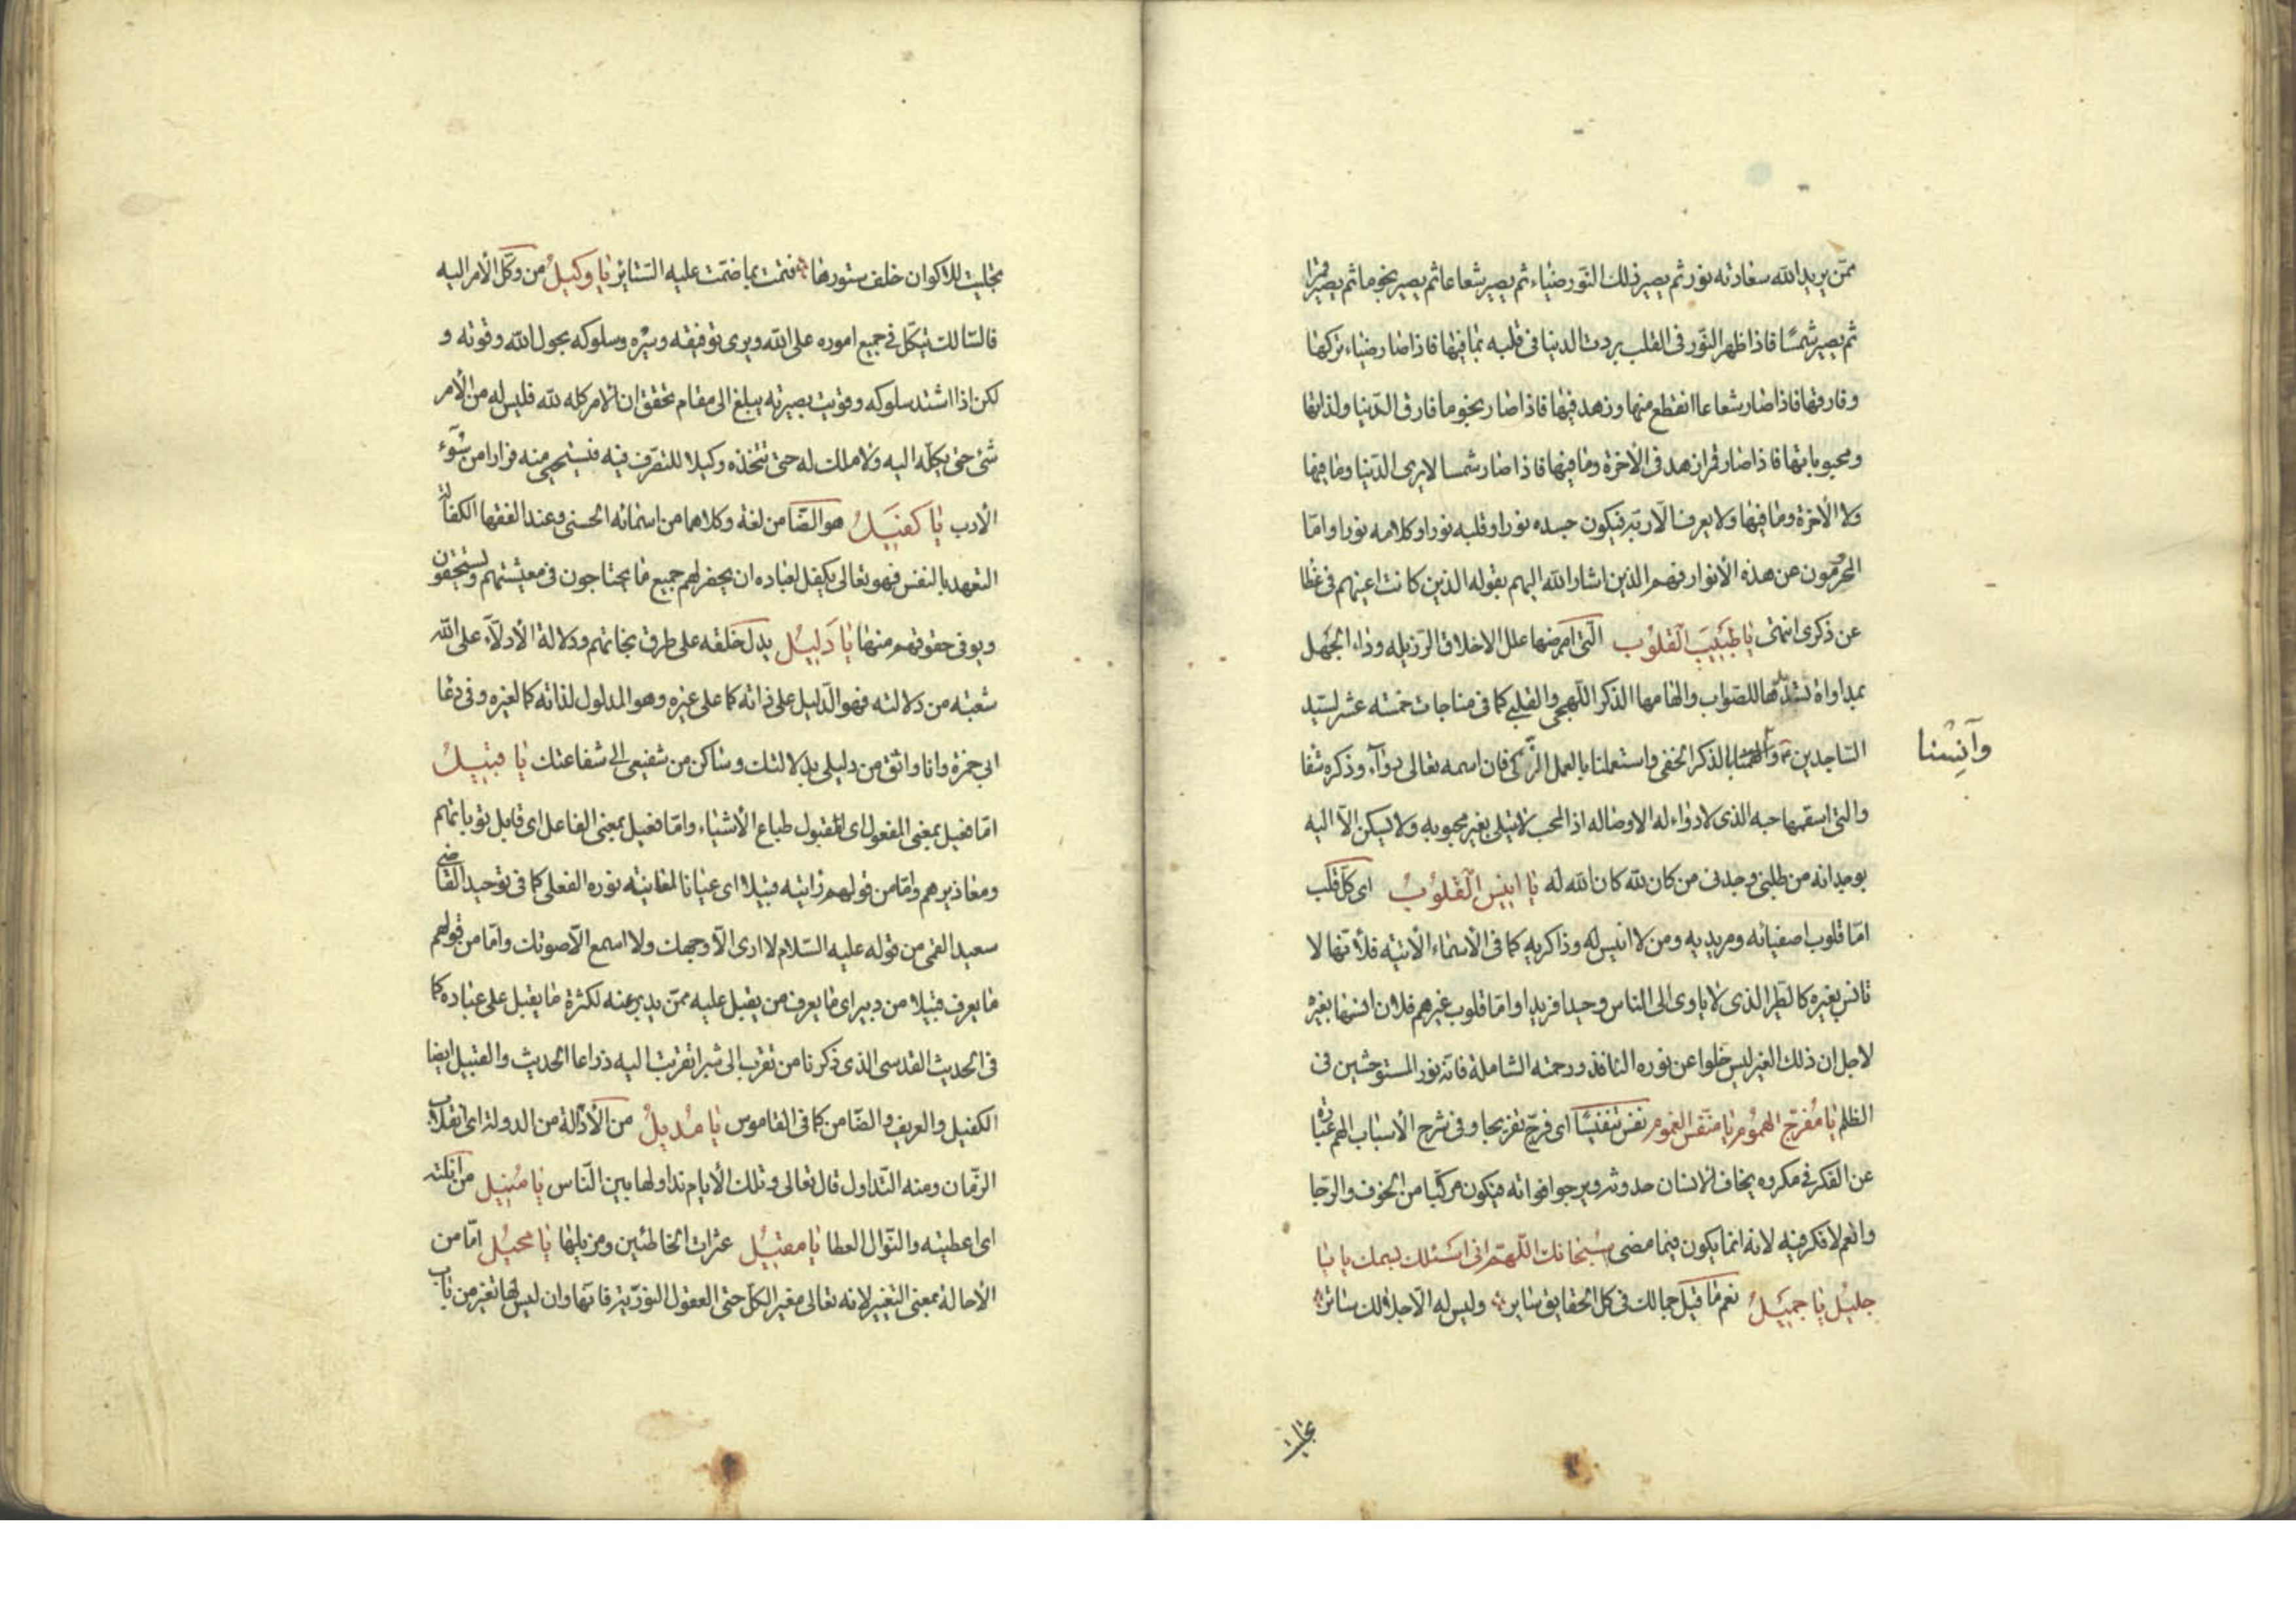 ممّن يريد الله سعادته نور ثم يصير ذلك النّور ضياء ثم يصير شعاعا ثم يصير نجوما ثم يصير قمرا
ثم يصير شمسًا فاذا ظهر النّور فى القلب بردت الدنيا فى قلبه بما فيها فاذا صار ضياء تركها
وفارقها فاذا صار شعاعا انقطع منها وزهد فيها فاذا صار نجوما فارق الدّنيا ولذاتها
ومحبوباتها فاذا صار قمرا زهد فى الأخرة وما فيها فاذا صار شمسا لا يرى الدّنيا وما فيها
ولا الأخرة وما فيها ولا يعرف الّا ربّه فيكون جسده نورا وقلبه نورا وكلامه نورا وامّا
المحرمون عن هذه الأنوار فهم الذين اشار الله اليهم بقوله الذين كانت اعينهم فى غطا
عن ذكرى انتهى يا طَبيبَ القلوُب الّتى امرضها علل الاخلاق الرّذيله وداء الجَهل
بمداواة للصّواب والهامها الذكر اللّهجى والقلبى كما فى مناجات خمسه عشر لسيّد
السّاجدين بالذكر الخفى واستعملنا بالعمل الزّكى فان اسمه تعالى دوآء وذكره شفا
وآنِسْنا
والتى اسقمها حبه الذى لا دواء له الا وصاله اذ المحب لا يتسلى بغير محبوبه ولا يسكن الّا اليه
بوجدانه من طلبنى وجدنى من كان لله كان الله له يا انيسَ القلوُبِ اى كلّ قلب
امّا قلوب اصفيائه ومريديه ومن لا انيس له وذاكريه كما فى الأسماء الأتيّه فلأنّها لا
تانس بغيره كالطير الذى لا ياوى الى الناس وحيدا فريدا وامّا قلوب غيرهم فلان انسها بغيره
لاجل ان ذلك الغير ليس خلوا عن نوره النافذ ورحمته الشاملة فانّه نور المستوحشين فى
الظلم يا مُفرّج الهمُوم يا منَفّس الغموم نفس تنفيسًا اى فرّج تفريجا وفى شرح الأسباب الهم عبارة
عن الفكر فى مكروه يخاف الانسان حدوثه ويرجوا فواته فيكون مركّبا من الخوف والرّجا
والغم لا فكر فيه لانه انما يكون فيما مضى سُبْحانك اللّهمّ انى اسَئلك بسمك يا يا
جليُل يا جمَيلُ نعم ما قيل جمالك فى كل الحقايق ساير وليس له الّا جلالك ساتر
تجليت
تجليت للاكوان خلف ستورها فنمّت بما ضمّت عليه السّتاير يا وكيلُ من وكّل الأمر اليه
فالسّالك يتكّل فى جميع اموره على الله ويرى توفيقه وسيره وسلوكه بحول الله وقوته و
لكن اذا اشتد سلوكه وقويت بصيرته يبلغ الى مقام تحقق ان الامر كله لله فليس له من الأمر
شئ حتى يكله اليه ولا ملك له حتى تتخذه وكيلا للتصّرف فيه فيستحيى منه فرارا من سُوٓء
الأدب يا كفيَلُ هو الضّامن لغة وكلاهما من اسمائه الحسنى وعند الفقها الكفالة
التعهد بالنفس فهو تعالى يكفل لعباده ان يحضر لهم جميع ما يحتاجون فى معيشتهم ويستحقون
ويوفى حقوقهم منها يا دَليُل يدل خلقه على طرق نجاتهم ودلالة الأدلّاء على الله
شعبة من دلالته فهو الدّليل على ذاته كما على غيره وهو المدلول لذاته كما لغيره وفى دعا
ابى حمزة وانا واثق من دليلى بدلالتك وساكن من شفيعى الى شفاعتك يا قبيُلُ
امّا فعيل بمعنى المفعول اى المقبول طباع الأشياء وامّا فعيل بمعنى الفاعل اى قابل توباتهم
ومعاذيرهم وامّا من قولهم رايته قبيلا اى عيانا لمعاينة نوره الفعلى كما فى توحيد القاضى
سعيد القمى من قوله عليه السّلام لا ارى الّا وجهك ولا اسمع الّا صوتك وامّا من قولهم
ما يعرف قبيلا من دبير اى ما يعرف من يقبل عليه ممّن يدبر عنه لكثرة ما يقبل على عباده كما
فى الحديث القدسى الذى ذكرنا من تقرب الى شبرا تقربت اليه ذراعا الحديث والقبيل ايضا
الكفيل والعريف والضّامن كما فى القاموس يا مُديلُ من الأدالة من الدولة اى انقلاب
الزّمان ومنه التّداول قال تعالى وتلك الأيام نداولها بين النّاس يا مُنيل من انلته
اى اعطيته والنّوال العطا يا مقيُل عثرات الخاطئين ومزيلها يا محيُل امّا من
الأحالة بمعنى التغيير لانه تعالى مغير الكلّ حتى العقول النوريّة فانّها وان ليس لها تغير من باب